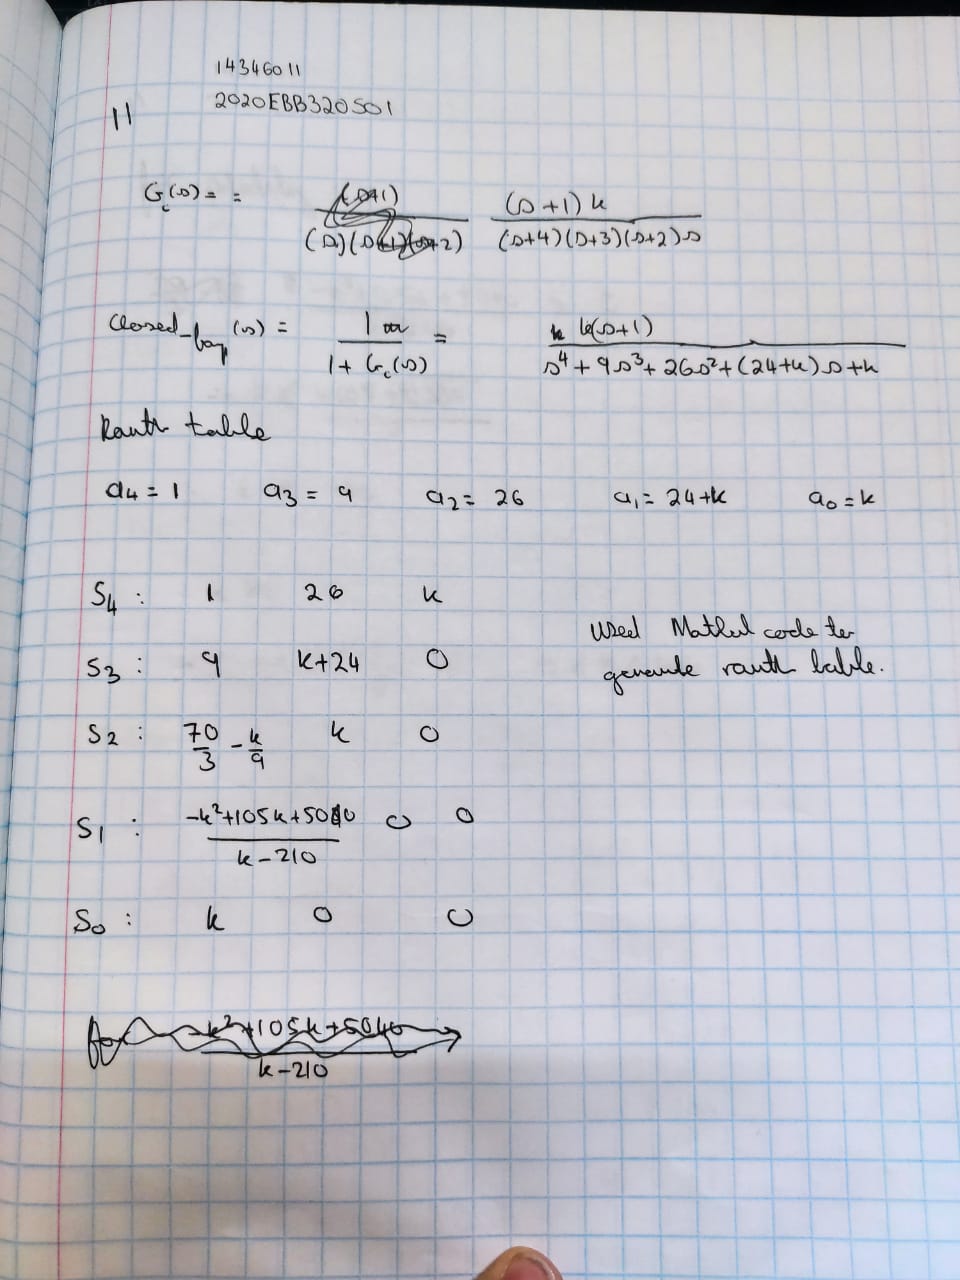 14346011
2020EBB320S01
11
G_c(s) = = (s+1)k / (s+4)(s+3)(s+2)s
Closed_loop(s) = 1 / 1 + G_c(s) = k(s+1) / s⁴ + 9s³ + 26s² + (24+k)s + k
Routh table
a₄ = 1 a₃ = 9 a₂ = 26 a₁ = 24+k a₀ = k
S₄ : 1 26 k
S₃ : 9 k+24 0
S₂ : 70/3 - k/9 k 0
S₁ : -k²+105k+5040 / k-210 0 0
S₀ : k 0 0
Used Matlab code to
generate routh table.
-k²+105k+5040 / k-210